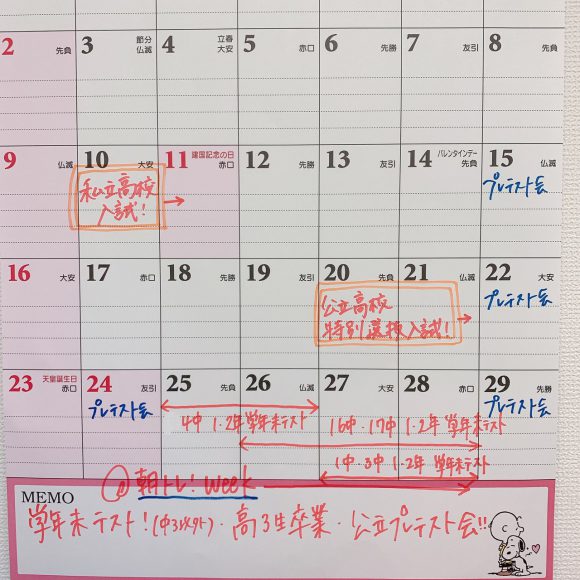 2 先負
3 節分 仏滅
4 立春 大安
5 赤口
6 先勝
7 友引
8 先負
9 仏滅
10 大安
11 建国記念の日 赤口
12 先勝
13 友引
14 バレンタインデー 先負
15 仏滅
私立高校
入試!
プレテスト会
16 大安
17 赤口
18 先勝
19 友引
20 先負
21 仏滅
22 大安
公立高校
特別選抜入試!
プレテスト会
23 天皇誕生日 赤口
24 友引
25 先負
26 仏滅
27 大安
28 赤口
29 先勝
プレテスト会
プレテスト会
4中 1・2年 学年末テスト
16中・17中 1・2年 学年末テスト
1中・3中 1・2年 学年末テスト
朝トレ! week
MEMO
学年末テスト!(中3以外)・高3生卒業・公立プレテスト会!!